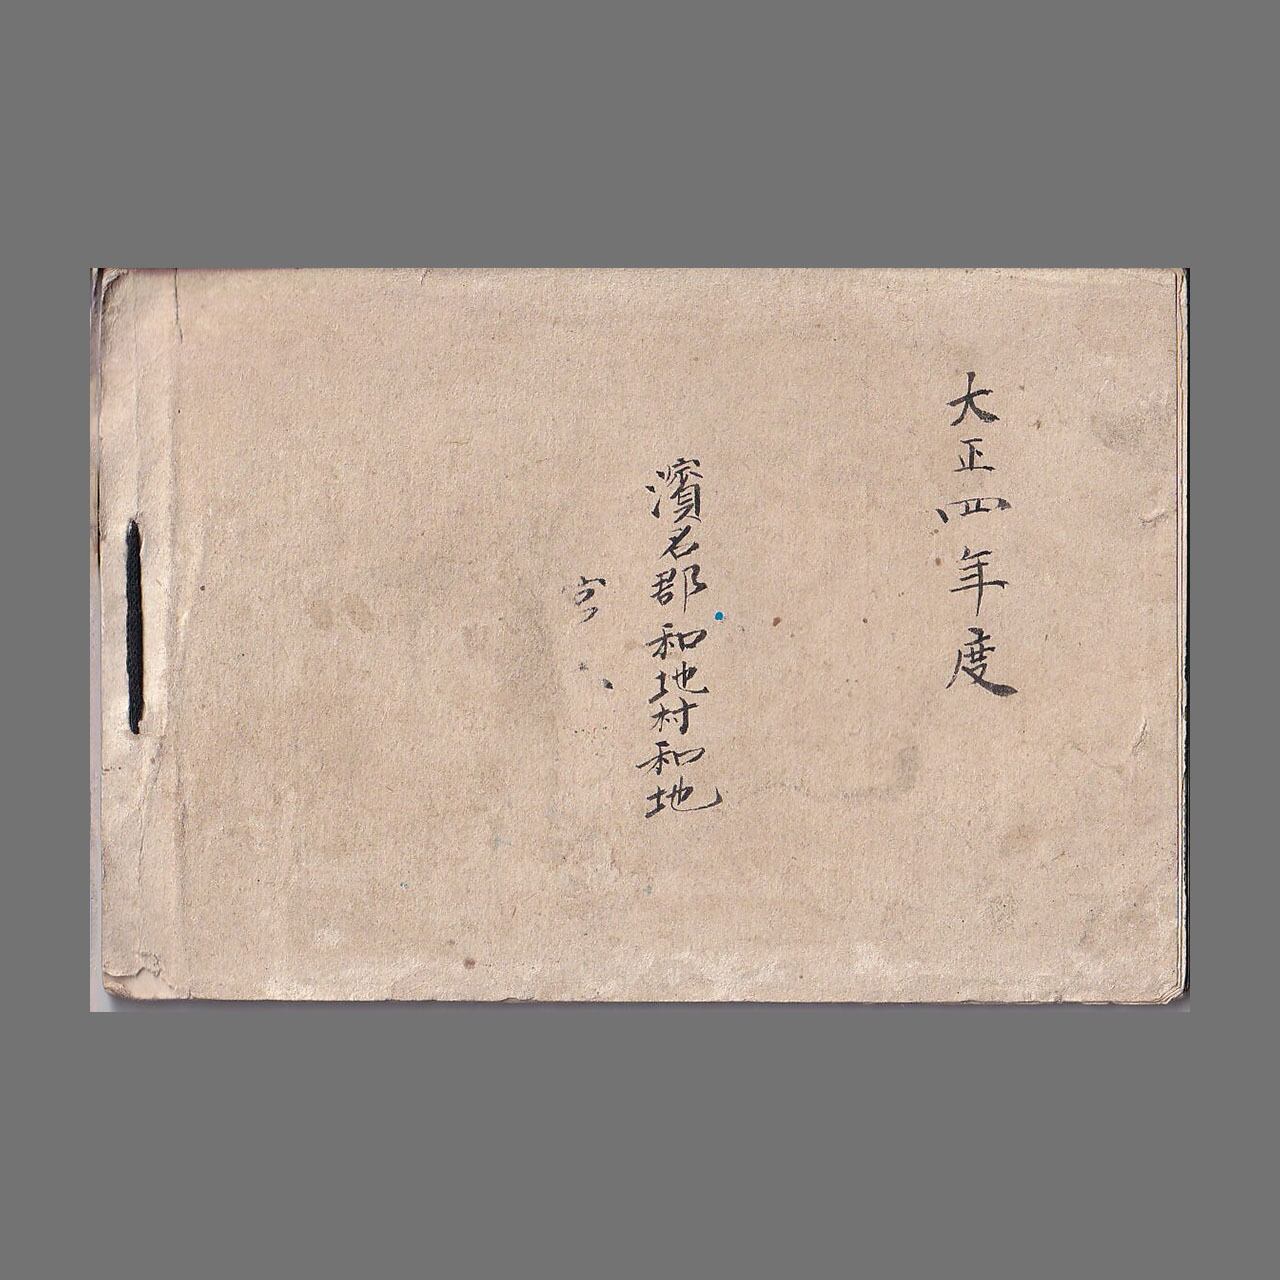 大正四年度
濱名郡和地村和地